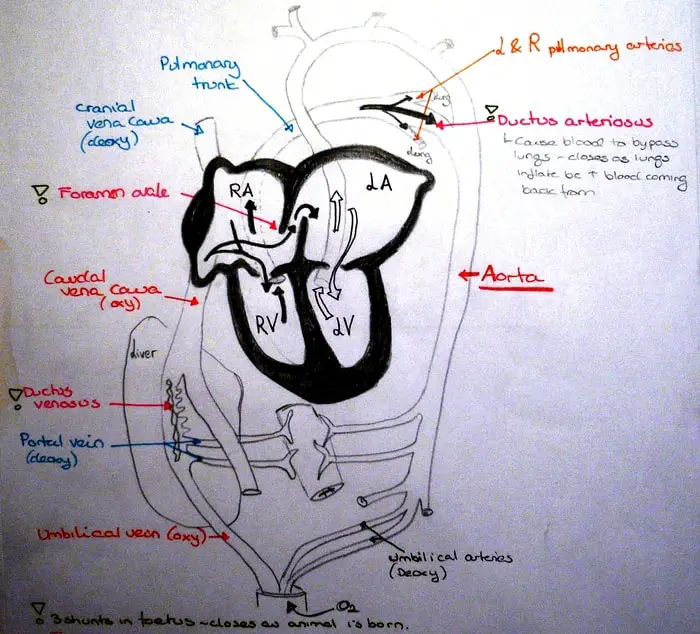 L & R pulmonary arteries
Pulmonary
trunk
cranial
vena cava
(deoxy)
lung
Ductus arteriosus
↳ Cause blood to bypass
lungs - closes as lungs
inflate bc ↑ blood coming
back from
lung
RA
LA
Foramen ovale
Caudal
vena cava
(oxy)
← Aorta
RV
LV
Liver
Ductus
venosus
Portal vein
(deoxy)
Umbilical vein (oxy)
umbilical arteries
(Deoxy)
O2
3 shunts in foetus ~ closes as animal is born.